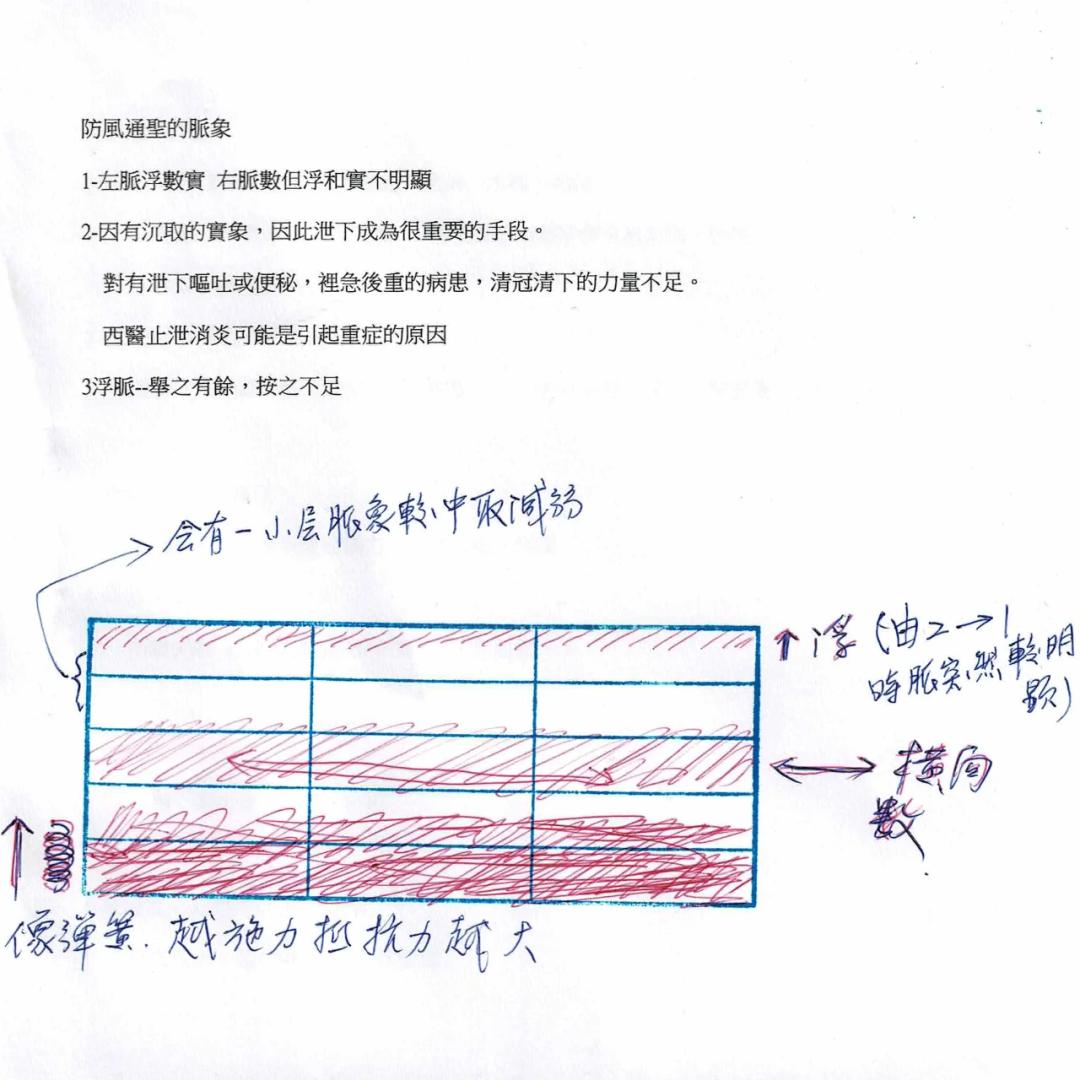 防風通聖的脈象
1-左脈浮數實 右脈數但浮和實不明顯
2-因有沉取的實象，因此泄下成為很重要的手段。
對有泄下嘔吐或便秘，裡急後重的病患，清冠清下的力量不足。
西醫止泄消炎可能是引起重症的原因
3浮脈--舉之有餘，按之不足
会有一小层脈象較中取減弱
浮 (由2→1
時脈突然較明
顯)
橫向
數
像弹簧.越施力抵抗力越大